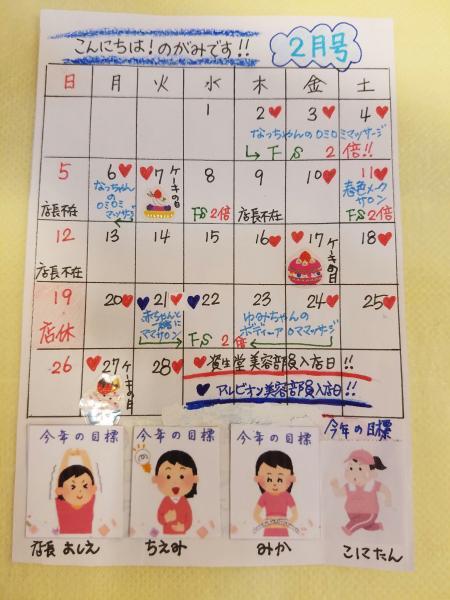 こんにちは!のがみです!!
2月号
日 月 火 水 木 金 土
1 2 3 4
なっちゃんのロミロミマッサージ
FS 2倍!!
5 6 7 8 9 10 11
店長不在
なっちゃんの
ロミロミ
マッサージ
ケーキの日
FS2倍
店長不在
春色メーク
サロン
FS2倍
12 13 14 15 16 17 18
店長不在
ケーキの日
19 20 21 22 23 24 25
店休
赤ちゃんと
一緒に
ママサロン
ゆみちゃんの
ボディーアロママッサージ
FS 2倍
26 27 28
ケーキの日
資生堂美容部員入店日!!
アルビオン美容部員入店日!!
今年の目標
今年の目標
今年の目標
今年の目標
店長 よしえ
ちえみ
みか
こにたん